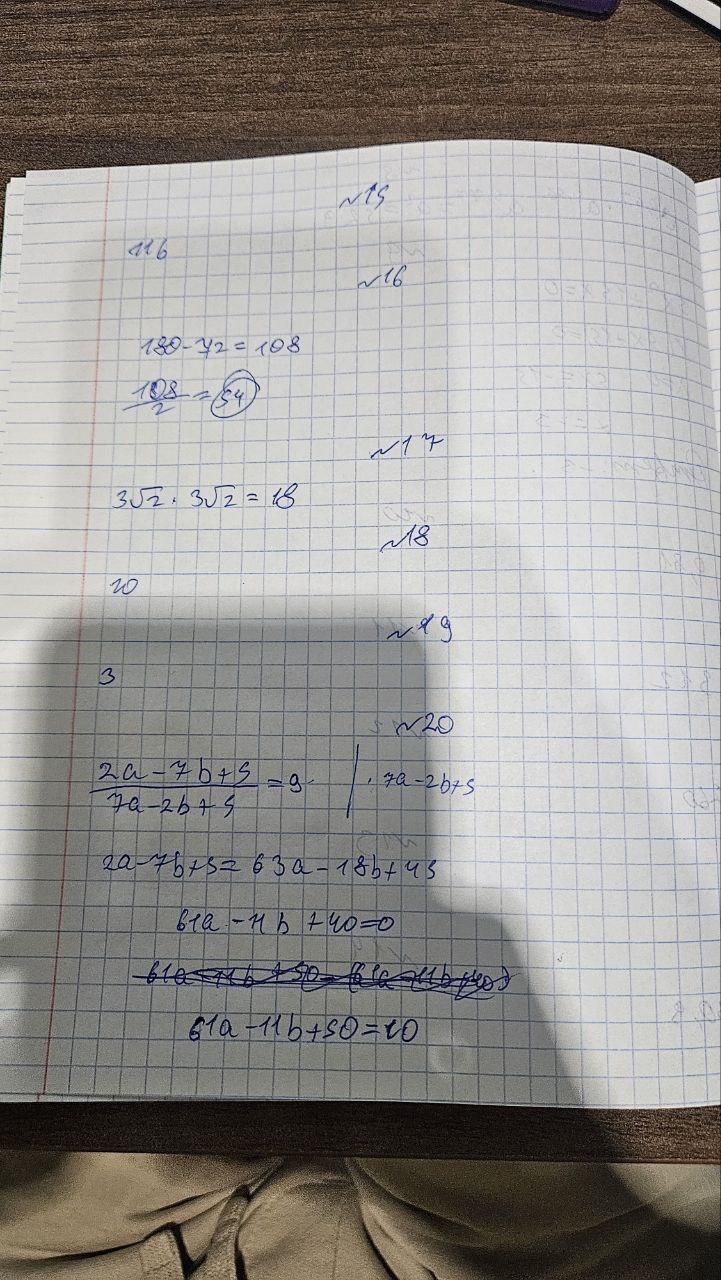 №15
116
№16
180-72=108
108/2=54
№17
3√2·3√2=18
№18
20
№19
3
№20
(2a-7b+5)/(7a-2b+5)=9 |·7a-2b+5
2a-7b+5=63a-18b+45
61a-11b+40=0
61a-11b+50=10